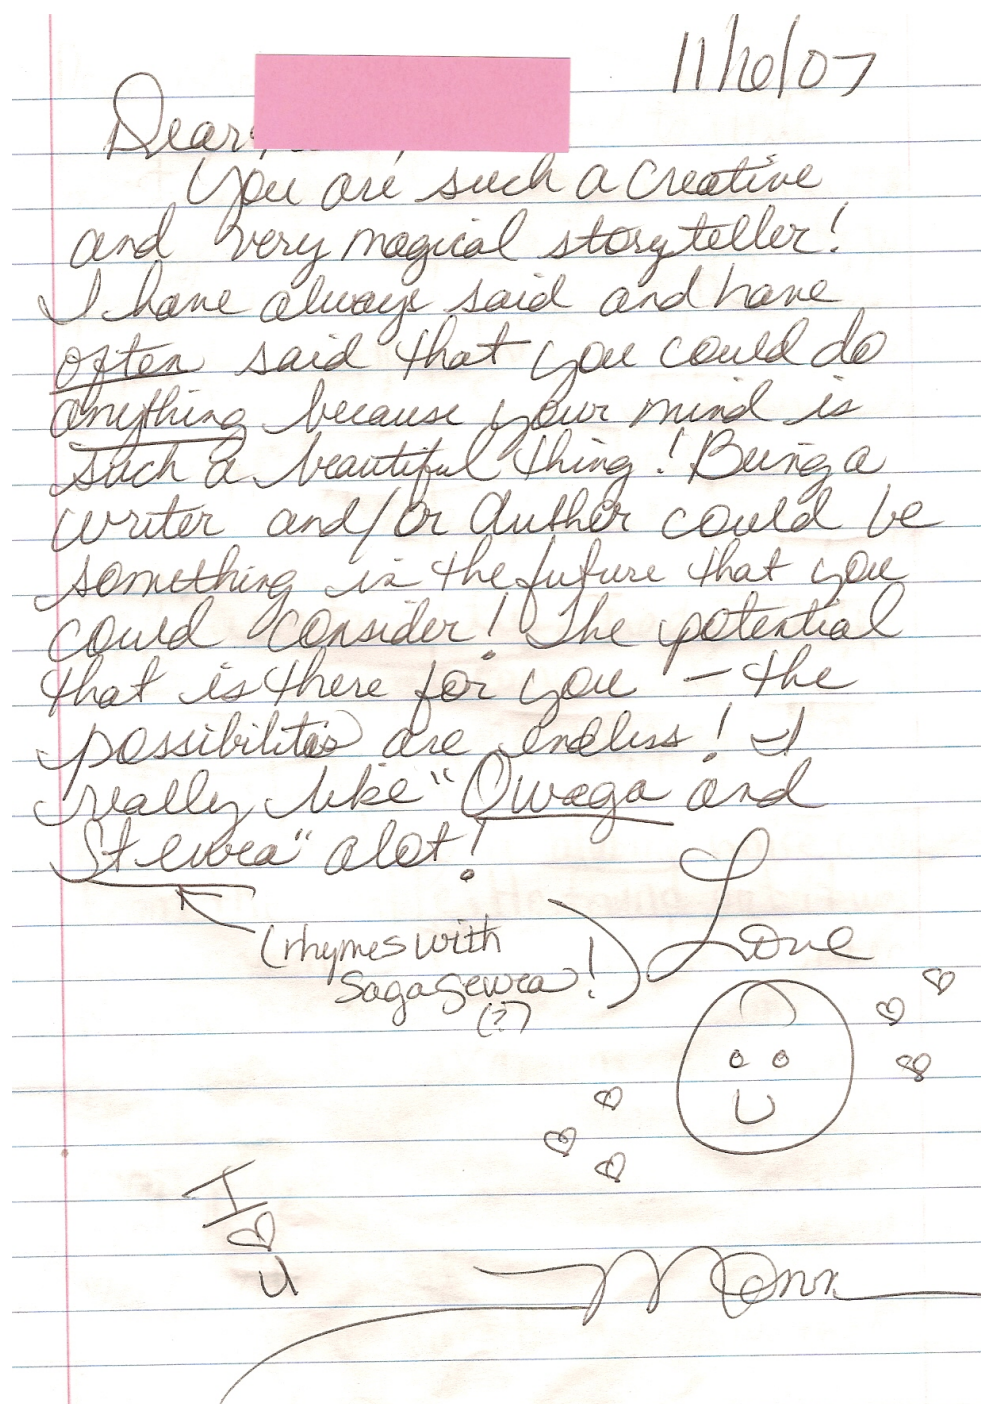 11/16/07
Dear
You are such a creative
and very magical storyteller!
I have always said and have
often said that you could do
anything because your mind is
such a beautiful thing! Being a
writer and/or Author could be
something in the future that you
could consider! The potential
that is there for you – the
possibilities are endless! I
really like "Owaga and
Stewra" alot!
(rhymes with
Sagasewra!)
(?)
Love
I ♡
U
Mom